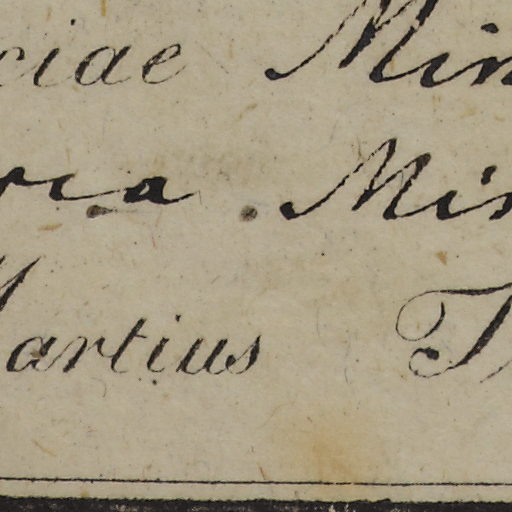 ciae Min
ria . Min
Martius T